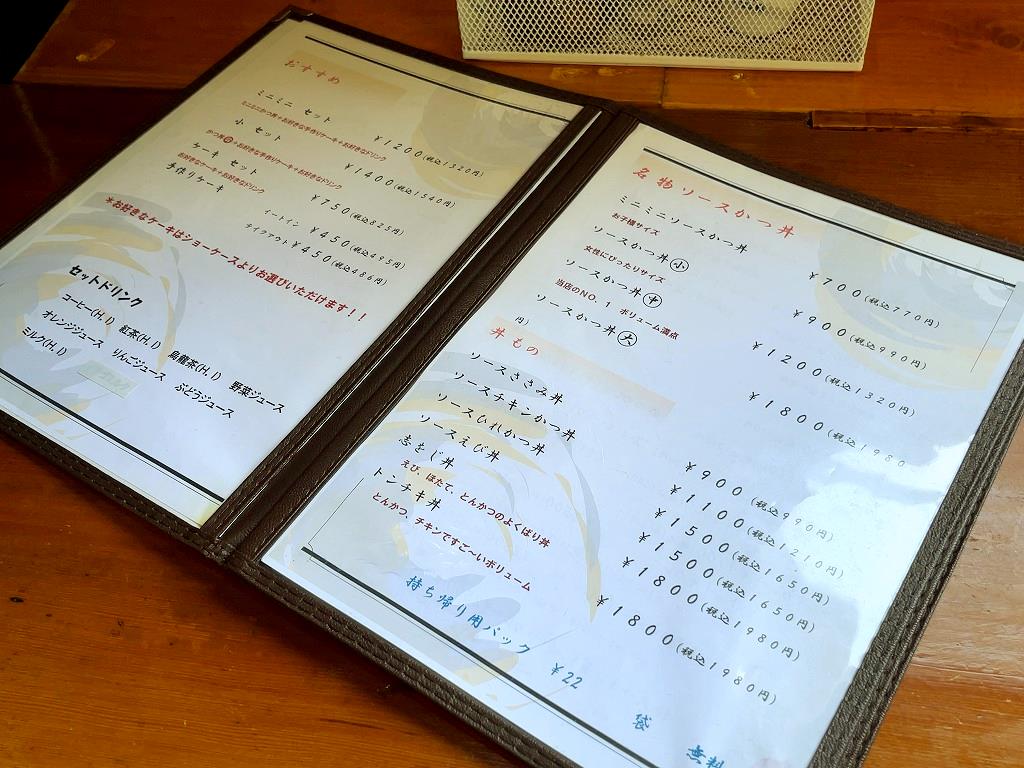 おすすめ
ミニミニ セット ¥1200(税込1320円)
ミニミニかつ丼+お好きな手作りケーキ+お好きなドリンク
小 セット ¥1400(税込1540円)
かつ丼小+お好きな手作りケーキ+お好きなドリンク
ケーキ セット ¥750(税込825円)
お好きなケーキ+お好きなドリンク
手作りケーキ
イートイン ¥450(税込495円)
テイクアウト¥450(税込486円)
*お好きなケーキはショーケースよりお選びいただけます!!
セットドリンク
コーヒー(H.I) 紅茶(H.I) 烏龍茶(H.I) 野菜ジュース
オレンジジュース りんごジュース ぶどうジュース
ミルク(H.I)
名物ソースかつ丼
ミニミニソースかつ丼 ¥700(税込770円)
お子様サイズ
ソースかつ丼小 ¥900(税込990円)
女性にぴったりサイズ
ソースかつ丼中 ¥1200(税込1320円)
当店のNO.1 ボリューム満点
ソースかつ丼大 ¥1800(税込1980
円)
丼もの
ソースささみ丼 ¥900(税込990円)
ソースチキンかつ丼 ¥1100(税込1210円)
ソースひれかつ丼 ¥1500(税込1650円)
ソースえび丼 ¥1500(税込1650円)
志をじ丼 ¥1800(税込1980円)
えび、ほたて、とんかつのよくばり丼
トンチキ丼 ¥1800(税込1980円)
とんかつ、チキンですご～いボリューム
持ち帰り用パック ¥22
袋 無料